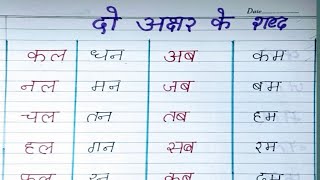 Date
दो अक्षर के शब्द
कल धन अब कम
नल मन जब बम
चल तन तब हम
हल गन सब रम
फल रन कब दम